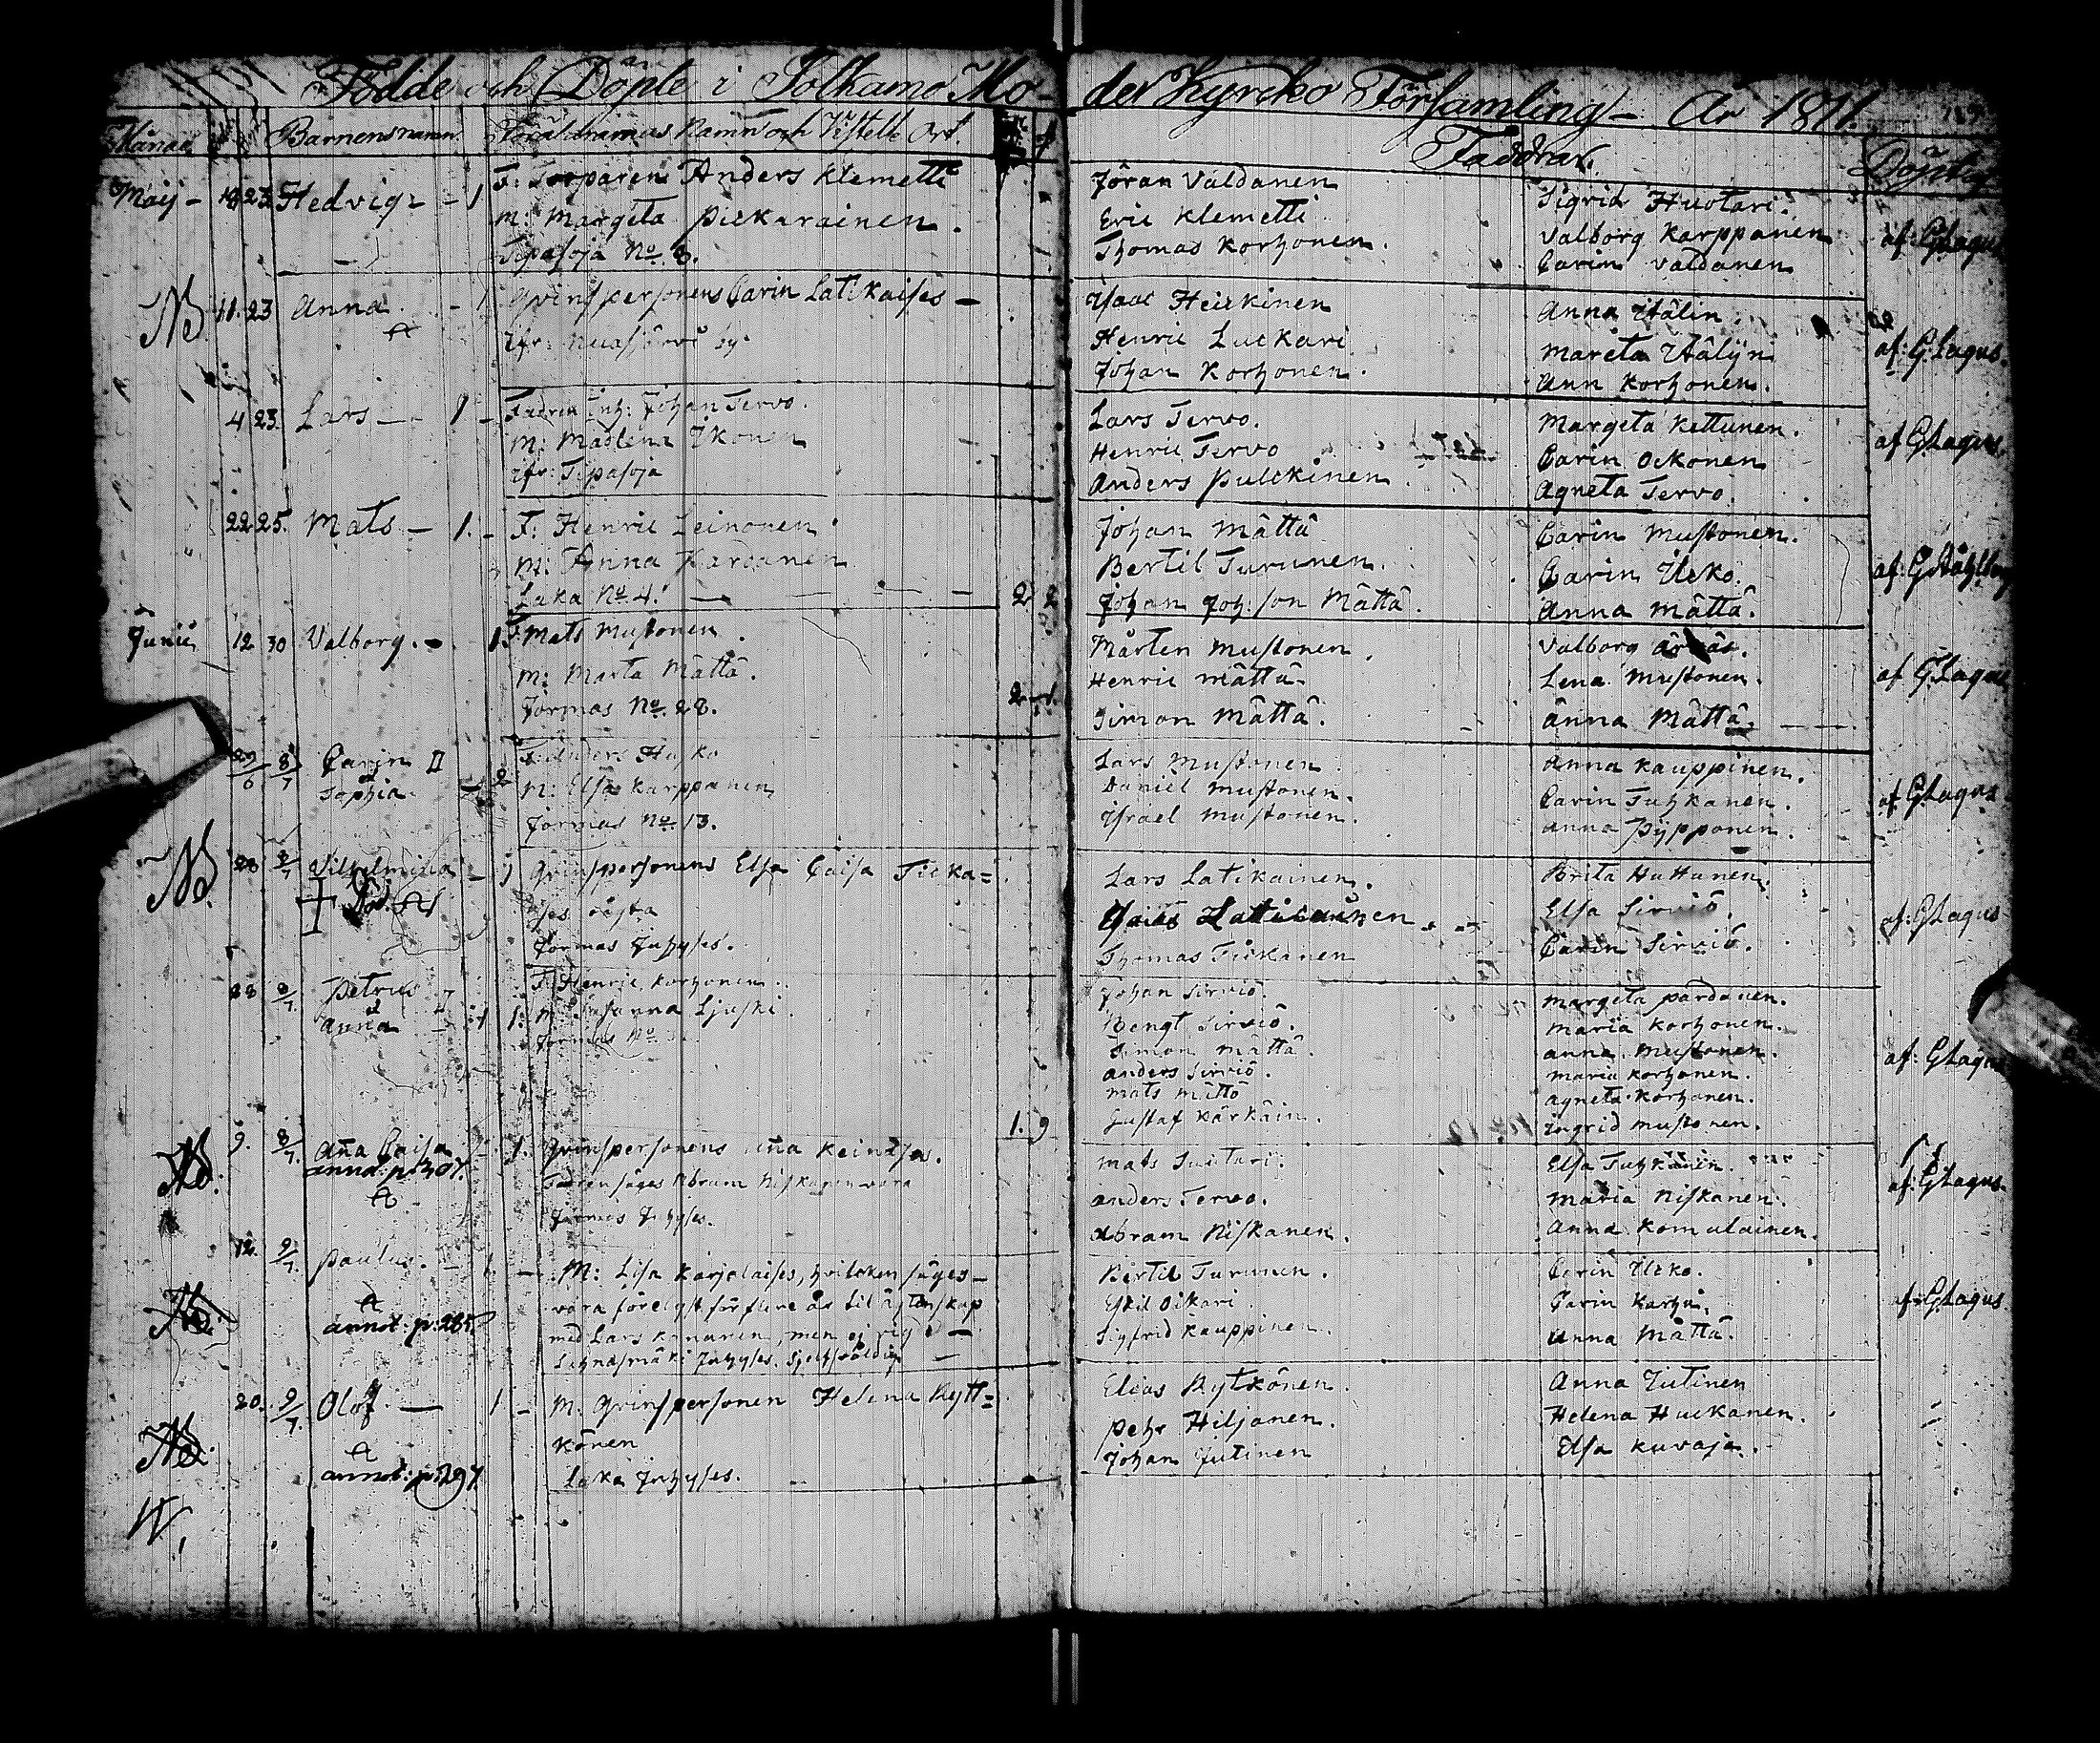 Födde och Döpte i Sotkamo Mo-
der Kyrcko Församling - År 1811.
Månad Barnens namn Föräldrarnas Namn och Vistelse Ort.
Faddrar.
Maij - 18 23 Hedvig - 1 F: Torparen Anders Klemetti
M: Margeta Pickarainen.
Tipasoja No. 8.
Jöran Valdanen
Eric Klemetti
Thomas Korhonen.
Sigrid Huotari.
Valborg Karppanen
Carin Valdanen
af: GLagus
NB 11. 23 Anna - 1 Qvinspersonens Carin Latikaises -
ifr: Nuasjärvi by.
Isaac Heickinen
Henric Luckari
Johan Korhonen.
Anna
Mareta
Ann Korhonen.
af: GLagus.
4 23. Lars - 1 - Fadren Inh: Johan Tervo.
M: Madlena Ikonen
ifr: Tipasoja
Lars Tervo.
Henric Tervo
Anders Pulckinen
Margeta Kettunen.
Carin Ockonen
Agneta Tervo.
af GLagus.
22 25. Mats - 1. - F: Henric Leinonen
M: Anna Kardanen
Laka No. 4. - 2 2
Johan Mättä
Bertil Turunen.
Johan Joh:son Mättä.
Carin Mustonen.
Carin Ucko.
Anna Mättä.
Junii 12 30 Valborg. - 1. F: Mats Mustonen.
M: Marta Mättä.
Jormas No. 28.
Mårten Mustonen.
Henric Mättä
Simon Mättä.
Valborg
Lena Mustonen.
Anna Mättä.
af GLagus
29/6 8/7 Carin II
Sophia 2 F: Anders Husko
M: Elsa Karppanen
Jormas No. 13.
Lars Mustonen
Daniel Mustonen.
Israel Mustonen.
Anna Kauppinen.
Carin Tuhkanen.
Anna Pypponen.
af GLagus
NB. 28 8/7 Vilhelmina - 1 Qvinspersonens Elsa Caisa Ticka=
ses
Jormas Inhyses.
Lars Latikainen.
Latikainen
Thomas Tickanen
Brita Huttunen.
Elsa Sirviö.
Carin Sirviö.
af: GLagus
28 8/7. Petrus II
Anna 1 1. F: Henric Korhonen.
M: Susanna Ljuski
Jormas No
1. 9
Johan Sirviö.
Bengt Sirviö.
Simon Mättä.
Anders Sirviö.
Mats Mättä
Gustaf Kärkäin.
Margeta Pardanen.
Maria Korhonen.
Anna Mustonen.
Maria Korhonen.
Agneta Korhonen.
Ingrid Mustonen.
af: GLagus
NB. 9. 8/7. Anna Caisa 1. Qvinspersonens Anna Keinäses.
annot: p: 307.
Fadren säges Abram Niskanen vara
Jormas Inhyses.
Mats
Anders Tervo.
Abram Niskanen.
Elsa Tuhkanen.
Maria Niskanen.
Anna Komulainen.
af: GLagus.
12 9/7. Paulus. - 1 - M: Lisa Karjalaises, hvilcken säges -
annot: p: 285.
vara förelyst för flere år til ägtenskap
med Lars Kananen, men ej vigd -
Lehnasmäki Inhyses.
Bertil Turunen.
Eskil Oikari
Sigfrid Kauppinen.
Carin Ucko.
Carin Karhu.
Anna Mättä.
af: GLagus.
NB. 20. 9/7. Olof - 1 - M. Qvinspersonen Helena Rytt=
könen
annot: p: 297.
Laka Inhyses.
Elias Rytkönen.
Pehr Hiljanen.
Johan Jutinen
Anna Jutinen
Helena Huckanen.
Elsa Kuvaja.